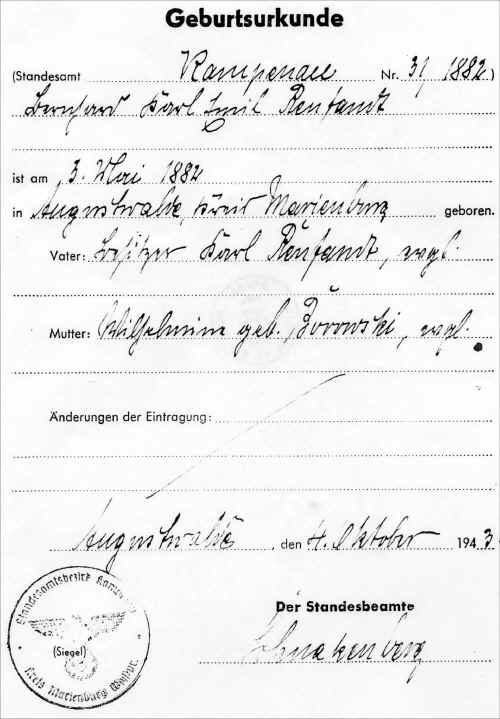 Geburtsurkunde
(Standesamt Kampenau Nr. 31/1882)
Bernhard Karl Emil Reufandt
ist am 3. Mai 1882
in Augustwalde, Kreis Marienburg geboren.
Vater: Besitzer Karl Reufandt, evgl.
Mutter: Wilhelmine geb. Borowski, evgl.
Änderungen der Eintragung:
Augustwalde, den 4. Oktober 1943.
Der Standesbeamte
Schnakenberg
Standesamtsbezirk Kampenau
(Siegel)
Kreis Marienburg Westpr.